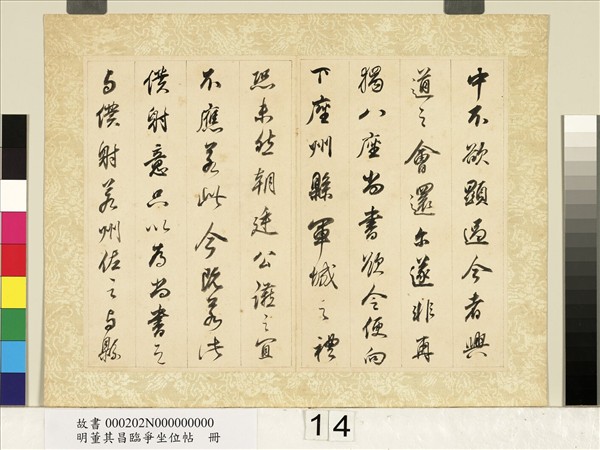 中不欲顯過今者興
道之會還尔遂非再
獨八座尚書欲令便向
下座州縣軍城之禮
恐未然朝廷公讌之宜
不應若此今既若此
僕射意只以為尚書之
与僕射若州佐之与縣
故書 000202N000000000
明董其昌臨爭坐位帖 冊
14